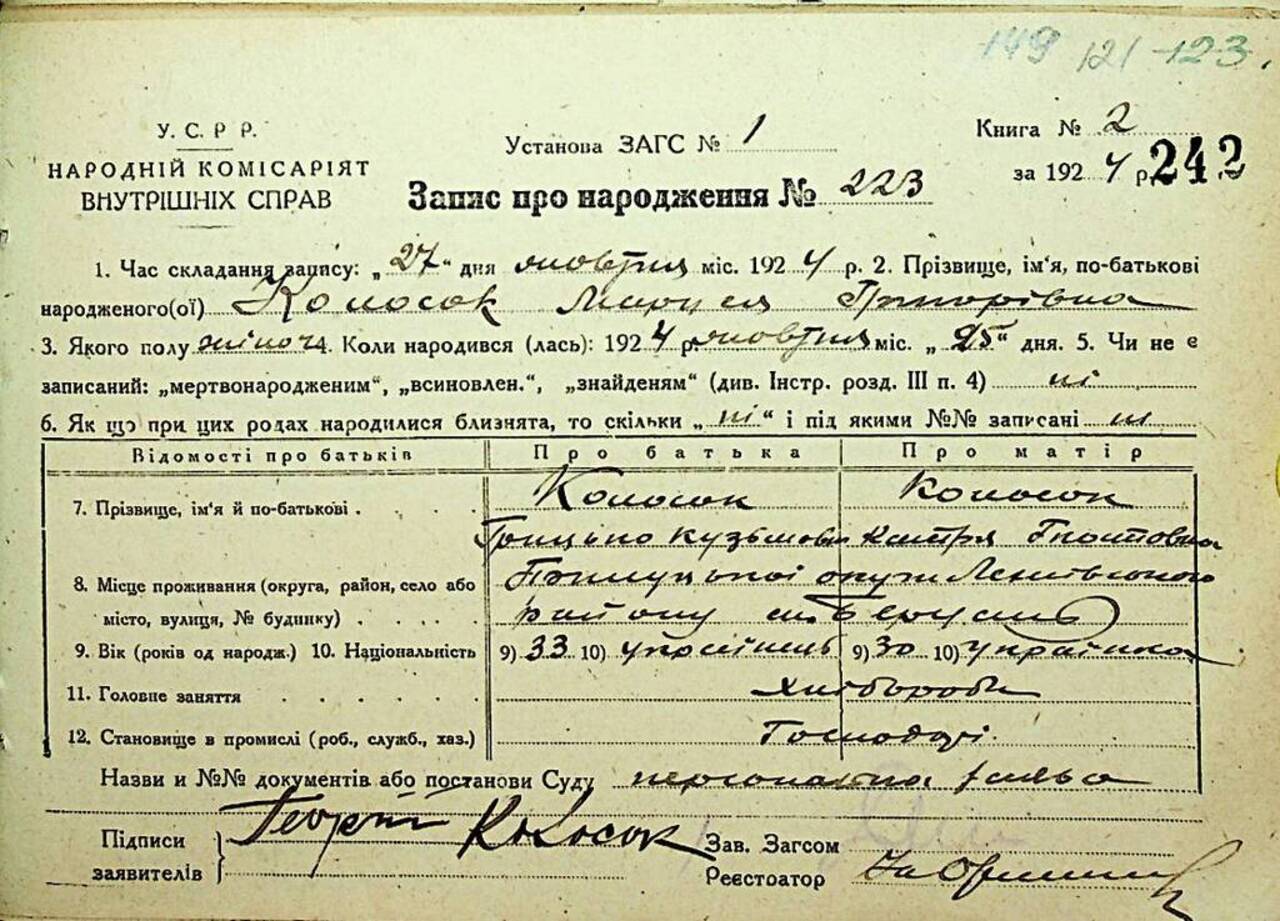 149 121 123.
У. С. Р Р.
НАРОДНІЙ КОМІСАРІЯТ
ВНУТРІШНІХ СПРАВ
Установа ЗАГС № 1
Запис про народження № 223
Книга № 2
за 1924 р. 242
1. Час складання запису: „27“ дня жовтня міс. 1924 р. 2. Прізвище, ім'я, по-батькові
народженого(ої) Колосок Маруся Григорівна
3. Якого полу жіноча. Коли народився (лась): 1924 р. жовтня міс. „25“ дня. 5. Чи не є
записаний: „мертвонародженим“, „всиновлен.“, „знайденям“ (див. Інстр. розд. III п. 4) ні
6. Як що при цих родах народилися близнята, то скільки „ні“ і під якими №№ записані ні
Відомості про батьків Про батька Про матір
7. Прізвище, ім'я й по-батькові . . . . Колосок Колосок
Грицько Кузьмови Кастря Гнатовна
8. Місце проживання (округа, район, село або Прилуцької округи
місто, вулиця, № будинку) . . . . району
9. Вік (років од народж.) 10. Національність 9) 33 10) українець 9) 30 10) українка
11. Головне заняття . . . . . Хлібороби
12. Становище в промислі (роб., служб., хаз.) Господарі.
Назви и №№ документів або постанови Суду персональна заява
Підписи
заявителів
Георгій Колосок
Зав. Загсом
Реєстоатор